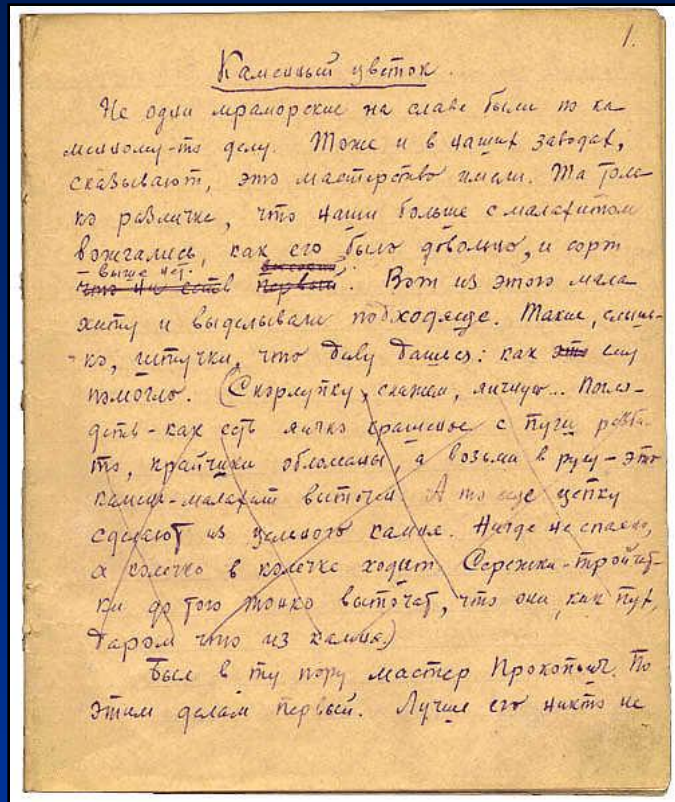 1.
Каменный цветок.
Не одни мраморские на славе были по ка
менному-то делу. Тоже и в наших заводах,
сказывают, это мастерство имели. Та толь
ко различка, что наши больше с малахитом
вожгались, как его было довольно, и сорт
выше нет.
что ни есть первый. Вот из этого мала
хиту и выделывали подходяще. Такие, слышь-
ко, штучки, что диву дашься: как это ему
помогло. (Скорлупку, скажем, яичную... Погля-
деть - как есть яичко крашеное с пуги
то, крайчики обломаны, а возьми в руку - это
камень-малахит выточен. А то еще цепку
сделают из цельного камня. Нигде не спаено,
а колечко в колечке ходит. Сережки-тройчат-
ки до того тонко выточат, что они, как пух,
даром что из камня.)
Был в ту пору мастер Прокопьич. По
этим делам первый. Лучше его никто не